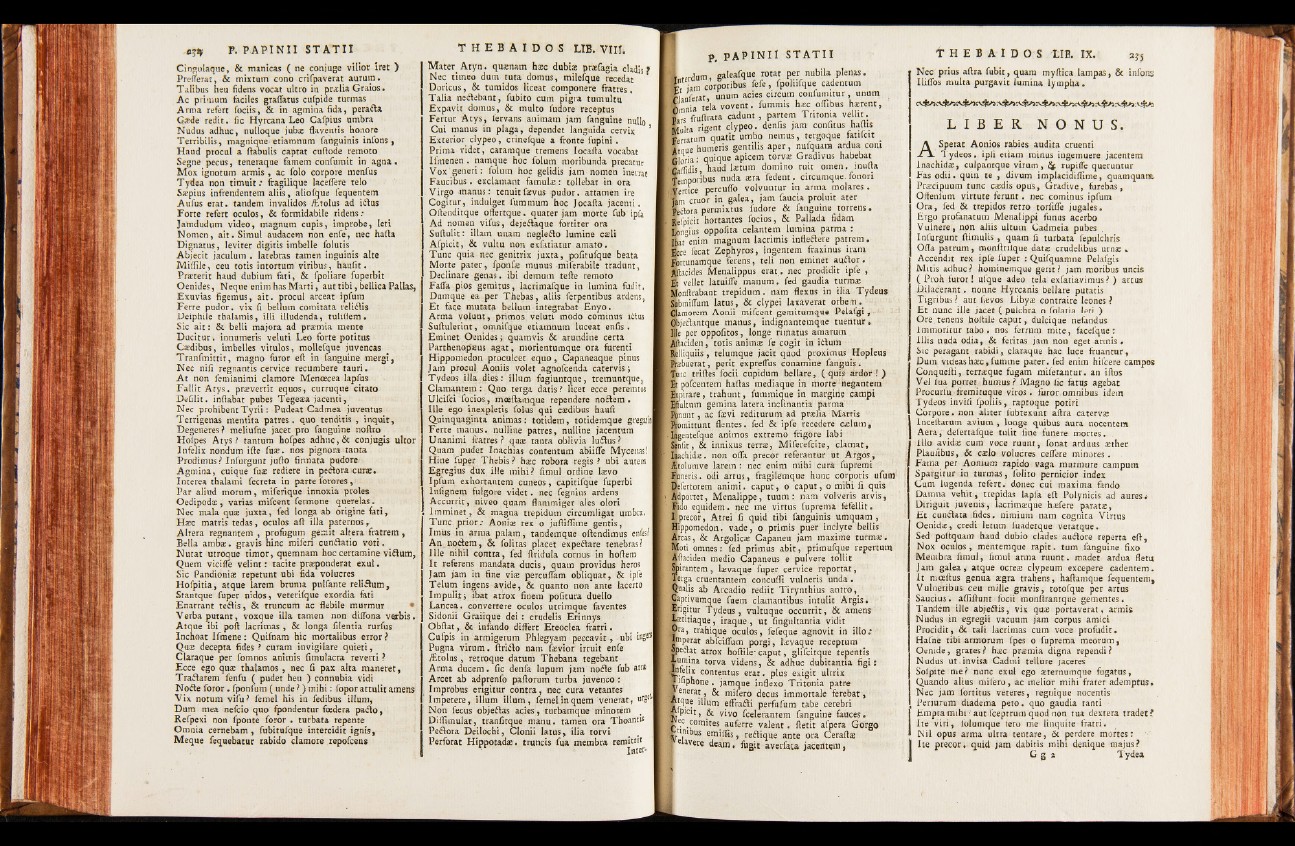 234 P. PAPINII STATII
Cingulaque, & manicas ( ne conjuge vilior iret )
Preſſerat, & mixtum cono criſpaverat aurum.
Talibus heu fidens vocat ultro in prælia Graios.
Ac primum faciles graſſatus cuſpide turmas
Arma refert ſociis, & in agmina fida, peracta
Gæde redit. ſic Hyrcana Leo Caſpius umbra
Nudus adhuc, nulloque jubæ flaventis honore
Terribilis, magnique etiamnum ſanguinis inſons,
Haud procul a ſtabulis captat cuſtode remoto
Segne pecus, teneraque famem conſumit in agna.
Mox ignotum armis, ac ſolo corpore menſus
Tydea non timuit: fragilique laceſſere telo
Sæpius infrendentem aliis, alioſque ſequentem
Auſus erat. tandem invalidos Ætolus ad ictus
Forte refert oculos, & formidabile ridens:
Jamdudum video, magnum cupis, improbe, leti
Nomen, ait. Simul audacem non enſe, nec haſta
Dignatus, leviter digitis imbelle ſolutis
Abjecit jaculum. latebras tamen inguinis alte
Miſſile, ceu totis intortum viribus, hauſit.
Præterit haud dubium fati, & ſpoliare ſuperbit
Oenides, Neque enim has Marti, aut tibi, bellica Pallas,
Exuvias figemus, ait. procul arceat ipſum
Ferre pudor. vix ſi bellum comitata relictis
Deiphile thalamis, illi illudenda, tuliſſem.
Sic ait: & belli majora ad præmia mente
Ducitur. innumeris veluti Leo forte potitus
Cædibus, imbelles vitulos, molleſque juvencas
Tranſmittit, magno furor eſt in ſanguine mergi,
Nec niſi regnantis cervice recumbere tauri.
At non ſemianimi clamore Menœcea lapſus
Fallit Atys. prævertit equos, curruque citato
Deſilit. inſtabat pubes Tegeæa jacenti,
Nec prohibent Tyrii: Pudeat Cadmea juventus
Terrigenas mentita patres. quo tenditis, inquit,
Degeneres? meliuſne jacet pro ſanguine noſtro
Hoſpes Atys? tantum hoſpes adhuc, & conjugis ultor
Infelix nondum iſte ſuæ. nos pignora tanta
Prodimus? Inſurgunt juſto firmata pudore
Agmina, cuique ſuæ rediere in pectora curæ.
Interea thalami ſecreta in parte ſorores,
Par aliud morum, miſerique innoxia proles
Oedipodæ, varias miſcent ſermone querelas.
Nec mala quæ juxta, ſed longa ab origine fati,
Hæc matris tedas, oculos aſt illa paternos,
Altera regnantem, profugum gemit altera fratrem,
Bella ambæ. gravis hinc miſeri cunctatio voti.
Nutat utroque timor, quemnam hoc certamine victum,
Quem viciſſe velint: tacite præponderat exul.
Sic Pandioniæ repetunt ubi fida volucres
Hoſpitia, atque larem bruma pulſante relictum,
Stantque ſuper nidos, veteriſque exordia fati
Enarrant tectis, & truncum ac flebile murmur
Verba putant, voxque illa tamen non diſſona verbis.
Atque ibi poſt lacrimas, & longa ſilentia rurſus
Inchoat Iſmene: Quiſnam hic mortalibus error?
Quæ decepta fides? curam invigilare quieti,
Claraque per ſomnos animis ſimulacra reverti?
Ecce ego quæ thalamos, nec ſi pax alta maneret,
Tractarem ſenſu ( pudet heu ) connubia vidi
Nocte ſoror. ſponſum (unde?) mihi: ſopor attulit amens
Vix notum viſu? ſemel his in ſedibus illum,
Dum mea neſcio quo ſpondentur fœdera pacto,
Reſpexi non ſponte ſoror. turbata repente
Omnia cernebam, ſubituſque intercidit ignis,
Meque ſequebatur rabido clamore repoſcens
THEBAIDOS LIB. VIII.
Mater Atyn. quænam hæc dubiæ præſagia cladis?
Nec timeo dum tuta domus, mileſque recedat
Doricus, & tumidos liceat componere fratres.
Talia nectebant, ſubito cum pigra tumultu
Expavit domus, & multo ſudore receptus
Fertur Atys, ſervans animam jam ſanguine nullo,
Cui manus in plaga, dependet languida cervix
Exterior clypeo, crineſque a fronte ſupini.
Prima videt, caramque tremens Jocaſta vocabat
Iſmenen. namque hoc ſolum moribunda precatur
Vox generi: ſolum hoc gelidis jam nomen inerrat
Faucibus. exclamant famulæ: tollebat in ora
Virgo manus: tenuit ſævus pudor. attamen ire
Cogitur, indulget ſummum hoc Jocaſta jacenti.
Oſtenditque offertque. quater jam morte ſub ipſa
Ad nomen viſus, dejectaque fortiter ora
Suſtulit: illam unam neglecto lumine cæli
Aſpicit, & vultu non exſatiatur amato.
Tunc quia nec genitrix juxta, poſituſque beata
Morte pater, ſponſæ munus miſerabile tradunt,
Declinare genas. ibi demum teſte remoto
Faſſa pios gemitus, lacrimaſque in lumina fudit.
Dumque ea per Thebas, aliis ſerpentibus ardens,
Et face mutata bellum integrabat Enyo.
Arma volunt, primos veluti modo cominus ictus
Suſtulerint, omniſque etiamnum luceat enſis.
Eminet Oenides; quamvis & arundine certa
Parthenopæus agat, morientumque ora furenti
Hippomedon proculcet equo, Capaneaque pinus
Jam procul Aoniis volet agnoſcenda catervis;
Tydeos illa dies: illum fugiuntque, tremuntque,
Clamantem: Quo terga datis? licet ecce peremtos
Ulciſci ſocios, mœſtamque rependere noctem.
Ille ego inexpletis ſolus qui cædibus hauſi
Quinquaginta animas: totidem, totidemque gregum
Ferte manus. nulline patres, nulline jacentum
Unanimi fratres? quæ tanta oblivia luctus?
Quam pudet Inachias contentum abiiſſe Mycenas!
Hine ſuper Thebis? hæc robora regis? ubi autem
Egregius dux ille mihi? ſimul ordine lævo
Ipſum exhortantem cuneos, capitiſque ſuperbi
Inſignem fulgore videt. nec ſegnius ardens
Accurrit, niveo quam flammiger ales olori
Imminet, & magna trepidum circumligat umbra.
Tunc prior: Aoniæ rex o juſtiſſime gentis,
Imus in arma palam, tandemque oſtendimus enſes!
An noctem, & ſolitas placet expectare tenebras?
Ille nihil contra, ſed ſtridula cornus in hoſtem
It referens mandata ducis, quam providus heros
Jam jam in fine viæ percuſſam obliquat, & ipſe
Telum ingens avide, & quanto non ante lacerto
Impulit; ibat atrox finem poſitura duello
Lancea. convertere oculos utrimque faventes
Sidonii Graiique dei: crudelis Erinnys
Obſtat, & infando differt Eteoclea fratri.
Cuſpis in armigerum Phlegyam peccavit, ubi ingens
Pugna virum. ſtricto nam ſævior irruit enſe
Ætolus, retroque datum Thebana tegebant
Arma ducem. ſic denſa lupum jam nocte ſub atra
Arcet ab adprenſo paſtorum turba juvenco:
Improbus erigitur contra, nec cura vetantes
Impetere, illum illum, ſemel in quem venerat, urget.
Non ſecus objectas acies, turbamque minorem
Diſſimulat, tranſitque manu. tamen ora Thoantis
Pectora Deilochi, Clonii latus, ilia torvi
Perforat Hippotadæ. truncis ſua membra remittit
Inter-
P. PAPINII STATII
Interdum, galeaſque rotat per nubila plenas.
Et jam corporibus ſeſe, ſpoliiſque cadentum
Clauſerat, unum acies circum conſumitur, unum
Omnia tela vovent. ſummis hæc oſſibus hærent,
Pars fruſtrata cadunt, partem Tritonia vellit.
Multa rigent clypeo. denſis jam conſitus haſtis
Ferratum quatit umbo nemus, tergoque fatiſcit
Atque humeris gentilis aper, nuſquam ardua coni
Gloria: quique apicem torvæ Gradivus habebat
Caſſidis, haud lætum domino ruit omen. inuſta
Temporibus nuda æra ſedent. circumque ſonori
Vertice percuſſo volvuntur in arma molares.
Jam cruor in galea, jam ſaucia proluit ater
Pectora permixtus ſudore & ſanguine torrens.
Reſpicit hortantes ſocios, & Pallada fidam
Longius oppoſita celantem lumina parma:
Ibat enim magnum lacrimis inflectere patrem.
Ecce ſecat Zephyros, ingentem fraxinus iram
Fortunamque ferens, teli non eminet auctor.
Aſtacides Menalippus erat. nec prodidit ipſe,
Et vellet latuiſſe manum. ſed gaudia turmæ
Monſtrabant trepidum. nam flexus in ilia Tydeus
Submiſſum latus, & clypei laxaverat orbem.
Clamorem Aonii miſcent gemitumque Pelaſgi,
Objectantque manus, indignantemque tuentur.
Ille per oppoſitos, longe rimatus amarum
Aſtaciden, totis animæ ſe cogit in ictum
Relliquiis, telumque jacit quod proximus Hopleus
Præbuerat, perit expreſſus conamine ſanguis.
Tunc triſtes ſocii cupidum bellare, ( quis ardor! )
Et poſcentem haſtas mediaque in morte negantem
Expirare, trahunt, ſummique in margine campi
Effultum gemina latera inclinantia parma
Ponunt, ac ſævi rediturum ad prælia Martis
Promittunt flentes. ſed & ipſe recedere cælum,
Ingenteſque animos extremo frigore labi
Senſit, & innixus terræ, Miſereſcite, clamat,
Inachidæ. non oſſa precor referantur ut Argos,
Ætolumve larem: nec enim mihi cura ſupremi
Funeris. odi artus, fragilemque hunc corporis uſum
Deſertorem animi. caput, o caput, o mihi ſi quis
Adportet, Menalippe, tuum: nam volveris arvis,
Fido equidem. nec me virtus ſuprema fefellit.
I precor, Atrei ſi quid tibi ſanguinis umquam,
Hippomedon. vade, o primis puer inclyte bellis
Arcas, & Argolicæ Capaneu jam maxime turmæ.
Moti omnes: ſed primus abit, primuſque repertum
Aſtaciden medio Capaneus e pulvere tollit
Spirantem, lævaque ſuper cervice reportat,
Terga cruentantem concuſſi vulneris unda.
Qualis ab Arcadio rediit Tirynthius antro,
Captivumque ſuem clamantibus intulit Argis.
Erigitur Tydeus, vultuque occurrit, & amens
Lætitiaque, iraque, ut ſingultantia vidit
Ora, trahique oculos, ſeſeque agnovit in illo:
Imperat abſciſſum porgi, lævaque receptum
Spectat atrox hoſtile caput, gliſcitque tepentis
Lumina torva videns, & adhuc dubitantia figi:
Infelix contentus erat. plus exigit ultrix
Tiſiphone. jamque inflexo Tritonia patre
Venerat, & miſero decus immortale ferebat,
Atque illum effracti perfuſum tabe cerebri
Aſpicit, & vivo ſcelerantem ſanguine fauces.
Nec comites auferre valent. ſtetit aſpera Gorgo
Crinibus emiſſis, rectique ante ora Ceraſtæ
Velavere deam. fugit averſata jacentem,
THEBAIDOS LIB. IX. 235
Nec prius aſtra ſubit, quam myſtica lampas, & inſons
Iliſſos multa purgavit lumina lympha.
LIBER NONUS.
ASperat Aonios rabies audita cruenti
Tydeos. ipſi etiam minus ingemuere jacentem
Inachidæ, culpantque virum, & rupiſſe queruntur
Fas odii. quin te, divum implacidiſſime, quamquam
Præcipuum tunc cædis opus, Gradive, furebas,
Oſſenſum virtute ferunt. nec cominus ipſum
Ora, ſed & trepidos retro torſiſſe jugales.
Ergo profanatum Menalippi funus acerbo
Vulnere, non aliis ultum Cadmeia pubes
Inſurgunt ſtimulis, quam ſi turbata ſepulchris
Oſſa patrum, monſtriſque datæ crudelibus urnæ.
Accendit rex ipſe ſuper: Quiſquamne Pelaſgis
Mitis adhuc? hominemque gerit? jam moribus uncis
( Proh furor! uſque adeo tela exſatiavimus? ) artus
Dilacerant. nonne Hyrcanis bellare putatis
Tigribus? aut ſævos Libyæ contraire leones?
Et nunc ille jacet ( pulchra o ſolatia leti )
Ore tenens hoſtile caput, dulcique nefandus
Immoritur tabo. nos ferrum mite, faceſque:
Illis nuda odia, & feritas jam non eget armis.
Sic peragant rabidi, claraque hac luce fruantur,
Dum videas hæc, ſumme pater. ſed enim hiſcere campos
Conqueſti, terræque fugam miſetantur. an iſtos
Vel ſua portet humus? Magno ſic fatus agebat
Procurſu fremituque viros. furor omnibus idem
Tydeos inviſi ſpoliis, raptoque potiri
Corpore. non aliter ſubtexunt aſtra catervæ
Inceſtarum avium, longe quibus aura nocentem
Aera, deſertaſque tulit ſine funere mortes.
Illo avidæ cum voce ruunt, ſonat arduus æther
Plauſibus, & cælo volucres ceſſere minores.
Fama per Aonium rapido vaga murmure campum
Spargitur in turmas, ſolito pernicior index
Cum lugenda refert. donec cui maxima fando
Damna vehit, trepidas lapſa eſt Polynicis ad aures.
Diriguit juvenis, lacrimæque hæſere paratæ,
Et cunctata fides. nimium nam cognita Virtus
Oenidæ, credi letum ſuadetque vetatque.
Sed poſtquam haud dubio clades auctore reperta eſt,
Nox oculos, mentemque rapit. tum ſanguine fixo
Membra ſimul, ſimul arma ruunt. madet ardua fletu
Jam galea, atque ocreæ clypeum excepere cadentem.
It mœſtus genua ægra trahens, haſtamque ſequentem,
Vulneribus ceu mille gravis, totoſque per artus
Saucius. aſſiſtunt ſocii monſtrantque gementes.
Tandem ille abjectis, vix quæ portaverat, armis
Nudus in egregii vacuum jam corpus amici
Procidit, & tali lacrimas cum voce profudit.
Haſne tibi armorum ſpes o ſuprema meorum,
Oenide, grates? hæc præmia digna rependi?
Nudus ut inviſa Cadmi tellure jaceres
Soſpite me? nunc exul ego æternumque fugatus,
Quando alius miſero, ac melior mihi frater ademptus.
Nec jam ſortitus veteres, regnique nocentis
Perjurum diadema peto. quo gaudia tanti
Empta mihi: aut ſceptrum quod non tua dextera tradet?
Ite viri, ſolumque fero me linquite fratri.
Nil opus arma ultra tentare, & perdere mortes:
Ite precor. quid jam dabitis mihi denique majus?
Gg 2 Tydea